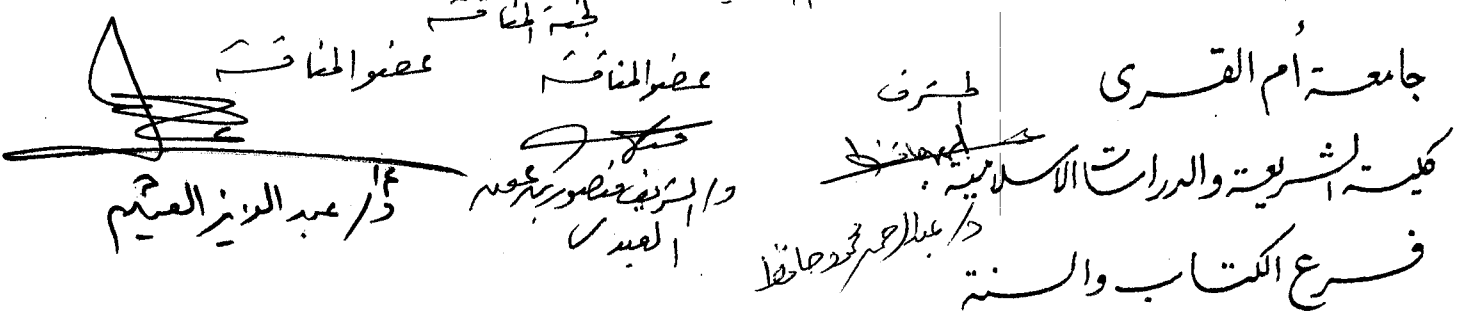 جامعة أم القرى
كلية الشريعة والدراسات الاسلامية
فرع الكتاب والسنة
لجنة المناقشة
المشرف
د/ عبدالرحمن محمود حافظ
عضو المناقشة
د/ الشريف منصور بن عون العبدلي
عضو المناقشة
د/ عبد العزيز العثيم